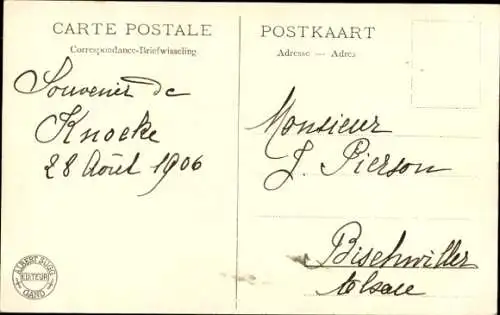 CARTE POSTALE
Correspondance-Briefwisseling
Souvenir de
Knocke
28 Août 1906
ALBERT SUGG
EDITEUR
GAND
POSTKAART
Adresse — Adres
Monsieur
J. Pierson
Bischwiller
Alsace